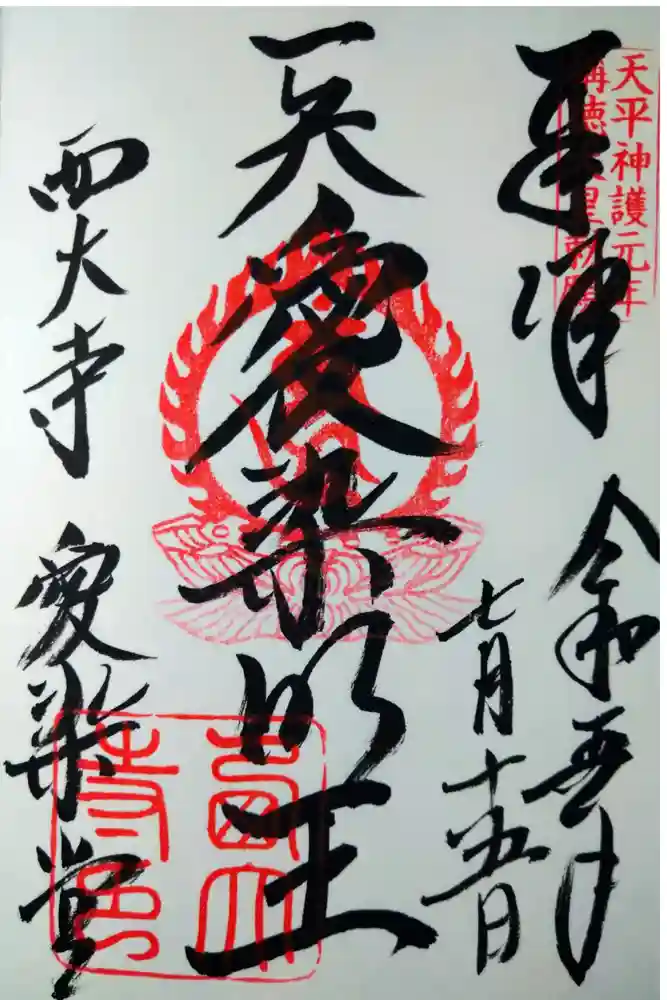 天平神護元年
稱德天皇勅願
奉拝
令和五年
七月十五日
愛染明王
西大寺
愛染堂